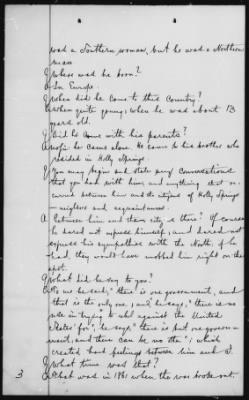 was a Southern woman, but he was a Northern
man
Q Where was he born?
A In Europe.
Q When did he come to this Country?
A When quite young; when he was about 13
years old.
Q Did he come with his parents?
A No sir he came alone. He came to his brother who
resided in Holly Springs.
Q You may begin and state any conversations
that you had with him, and anything that oc-
curred between him and the citizens of Holly Springs
or neighbors and acquaintances.
A Between him and them city is there? Of course
he dared not express himself, and dared not
express his sympathies with the North; if he
had, they would have mobbed him right on the
spot.
Q What did he say to you?
A To me he said, "there is one government, and
that is the only one", and, he says, "there is no
use in trying to rebel against the United
States" for", he says, "there is but one govern-
ment, and there can be no other"; which
created hard feelings between him and I.
Q What time was that?
A That was in 1861 when the war broke out.
3